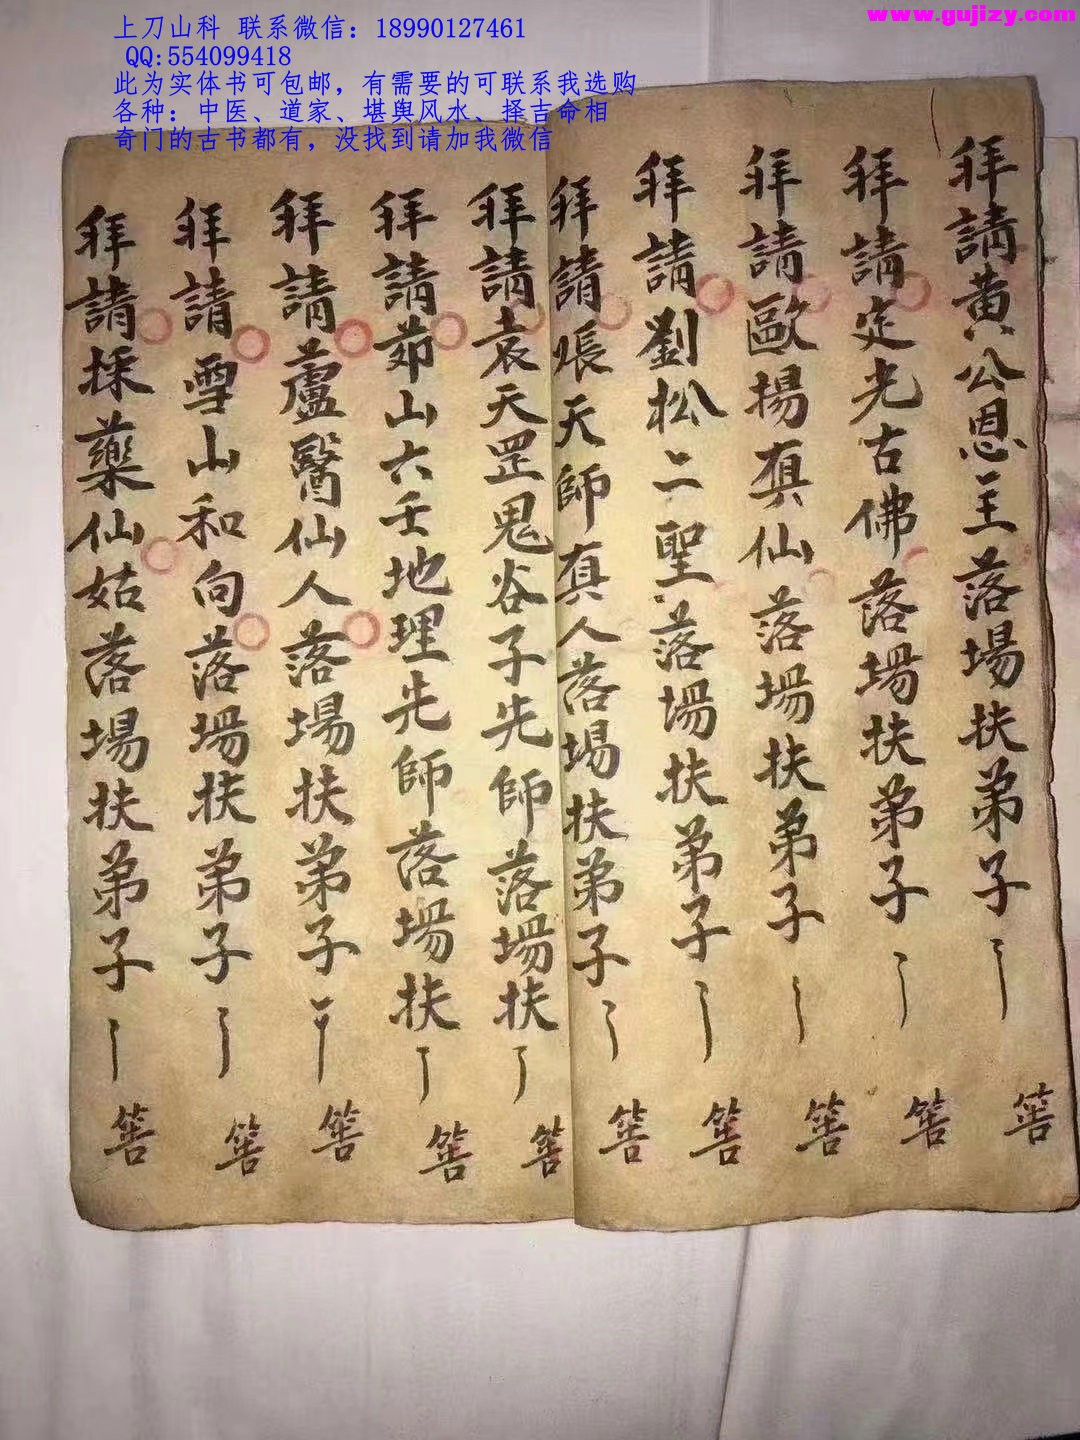 www.gujizy.com
上刀山科 联系微信：18990127461
QQ:554099418
此为实体书可包邮，有需要的可联系我选购
各种：中医、道家、堪舆风水、择吉命相
奇门的古书都有，没找到请加我微信
拜請黄公恩主落場扶弟子
拜請定光古佛落場扶弟子
拜請歐揚真仙落場扶弟子
拜請劉松二聖落場扶弟子
拜請張天師真人落場扶弟子
拜請袁天罡鬼谷子先師落場扶
拜請茆山六壬地理先師落場扶
拜請蘆醫仙人落場扶弟子
拜請雪山和向落場扶弟子
拜請採藥仙姑落場扶弟子